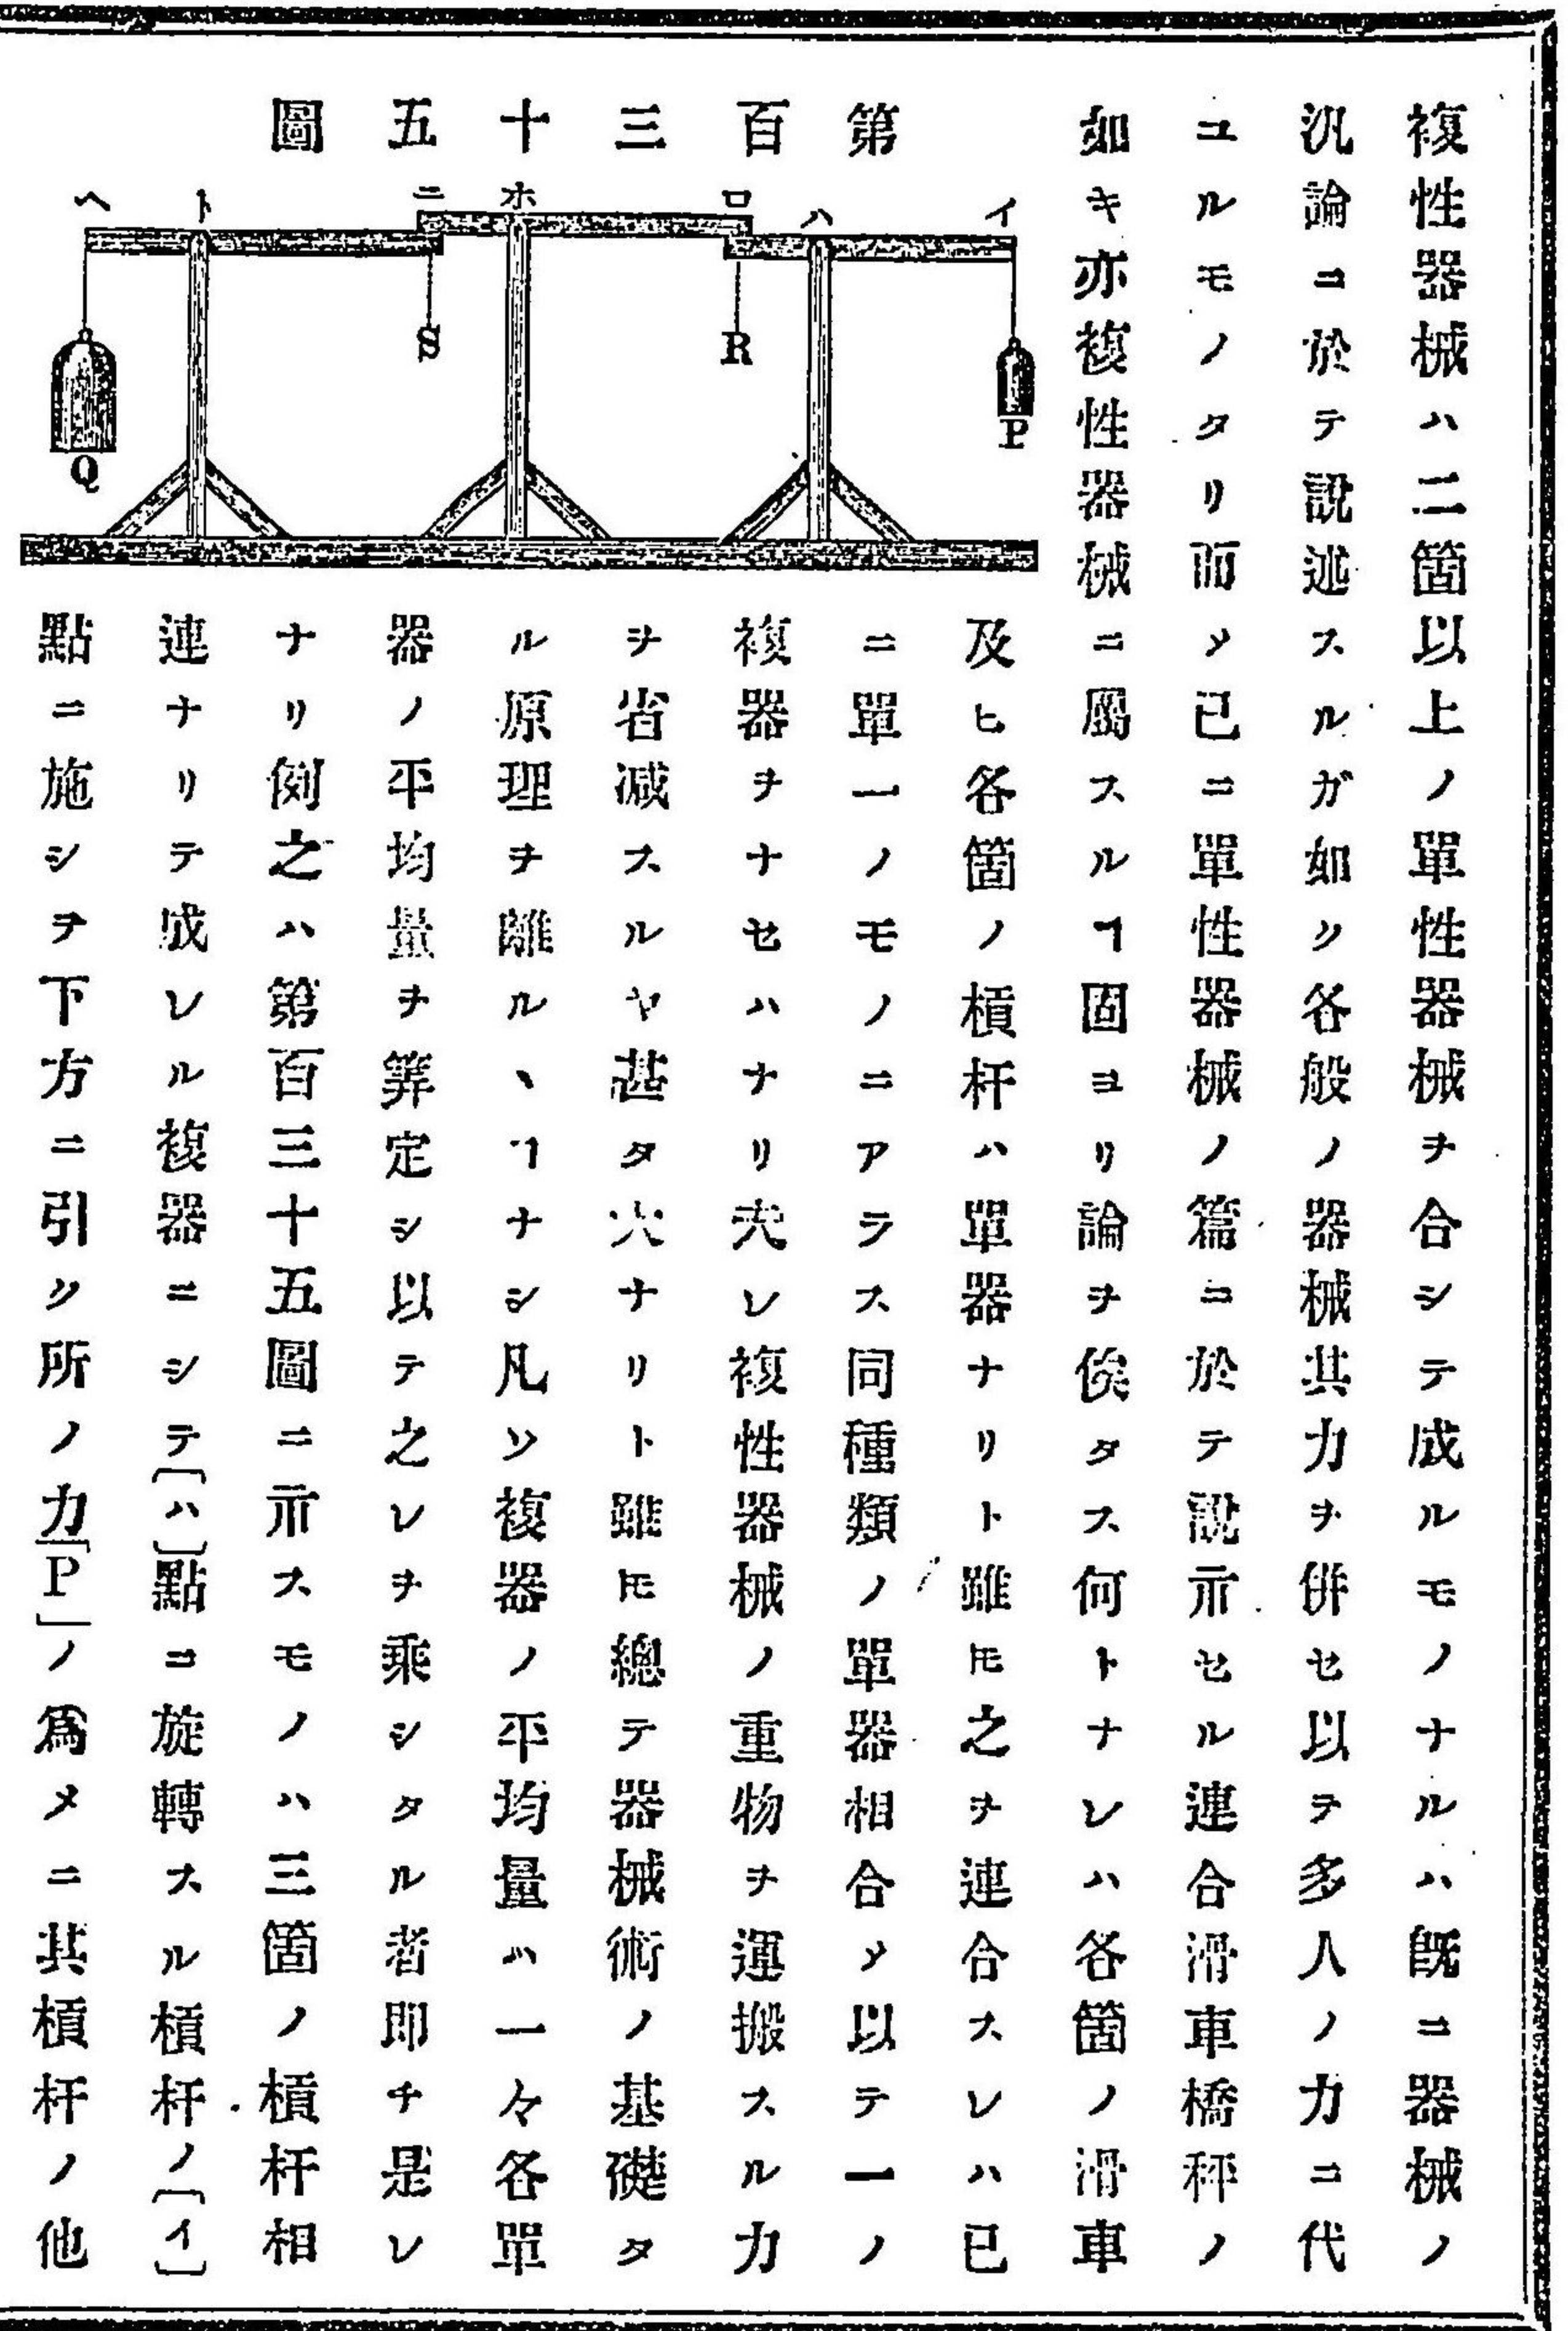 複性器械ハ二箇以上ノ單性器械ヲ合シテ成ルモノナルハ既ニ器械ノ
汎論ニ於テ說述スルガ如ク各般ノ器械其力ヲ併セ以テ多人ノ力ニ代
ユルモノタリ而メ已ニ單性器械ノ篇ニ於テ說示セル連合滑車橋秤ノ
如キ亦複性器械ニ屬スルヿ固ヨリ論ヲ俟タス何トナレハ各箇ノ滑車
及ヒ各箇ノ槓杆ハ單器ナリト雖𪜈之ヲ連合スレハ已
ニ單一ノモノニアラス同種類ノ單器相合メ以テ一ノ
複器ヲナセハナリ夫レ複性器械ノ重物ヲ運搬スル力
ヲ省減スルヤ甚タ大ナリト雖𪜈總テ器械術ノ基礎タ
ル原理ヲ離ルヽヿナシ凡ソ複器ノ平均量ハ一々各單
器ノ平均量ヲ筭定シ以テ之レヲ乘シタル者即チ是レ
ナリ例之ハ第百三十五圖ニ示スモノハ三箇ノ槓杆相
連ナリテ成レル複器ニシテ〔ハ〕點ニ旋轉スル槓杆ノ〔イ〕
點ニ施シヲ下方ニ引ク所ノ力〔P〕ノ爲メニ其槓杆ノ他
第百三十五圖
イ
ハ
ロ
ホ
ニ
ト
ヘ
P
R
S
Q